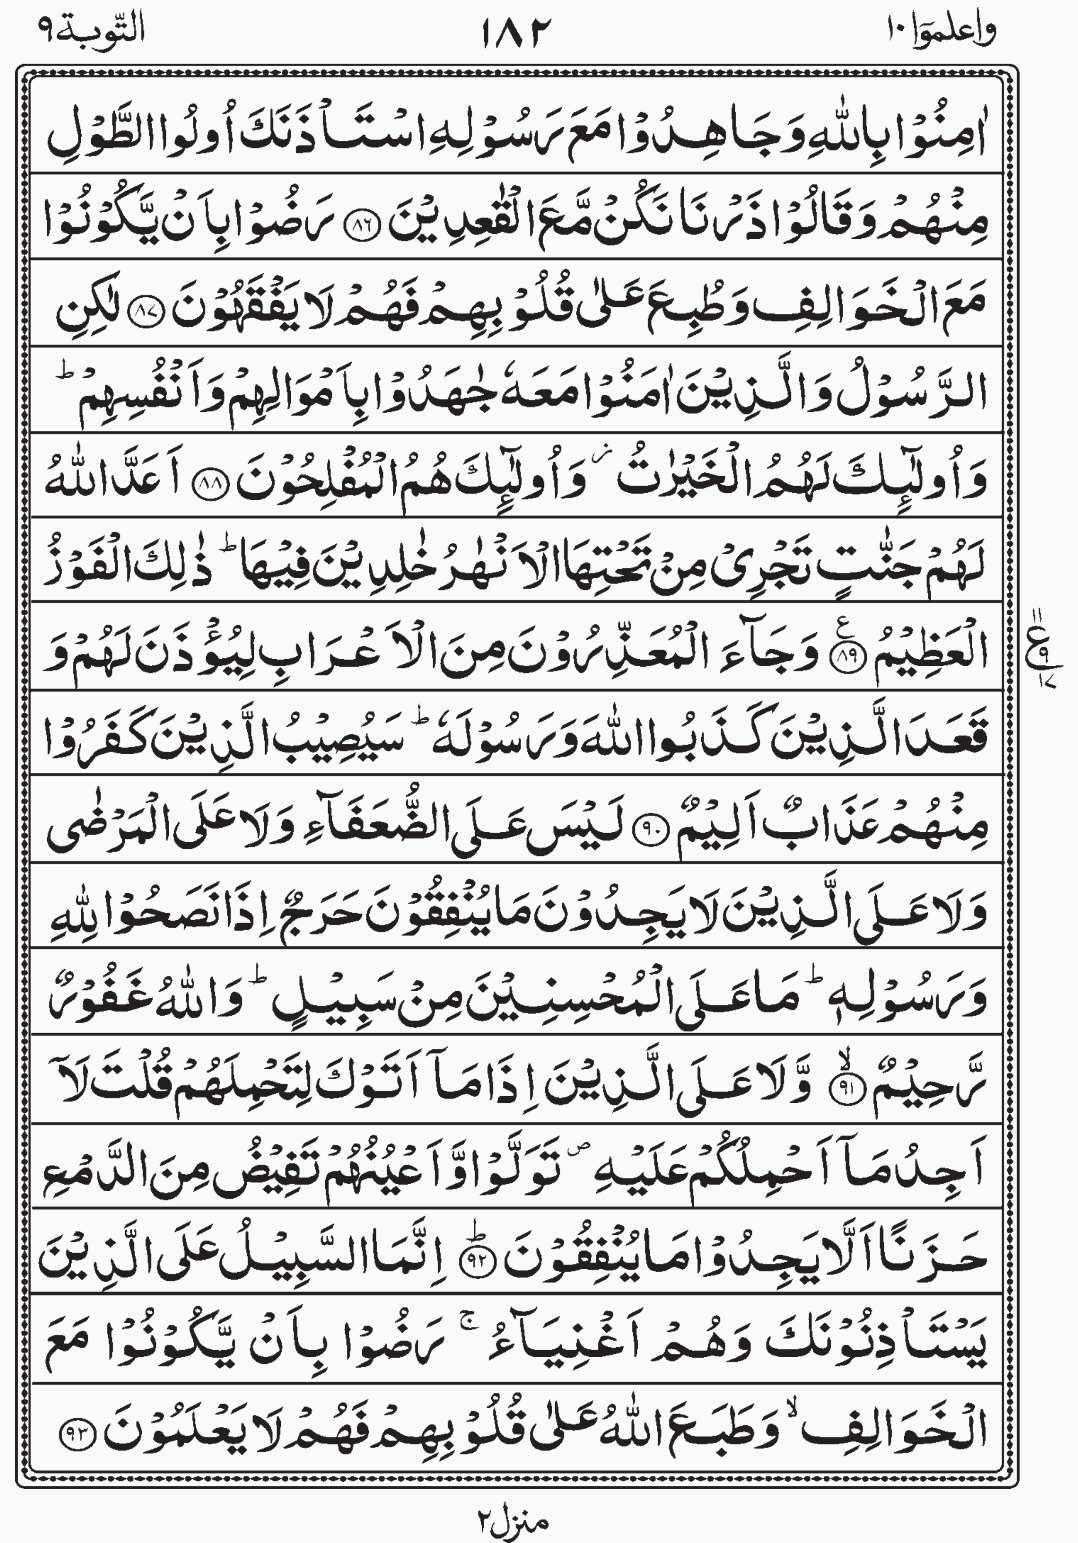 واعلموٓا ١٠
١٨٢
التّوبة ٩
اٰمِنُوْا بِاللّٰهِ وَجَاهِدُوْا مَعَ رَسُوْلِهِ اسْتَاْذَنَكَ اُولُوا الطَّوْلِ
مِنْهُمْ وَقَالُوْا ذَرْنَا نَكُنْ مَّعَ الْقٰعِدِيْنَ ﴿٨٦﴾ رَضُوْا بِاَنْ يَّكُوْنُوْا
مَعَ الْخَوَالِفِ وَطُبِعَ عَلٰى قُلُوْبِهِمْ فَهُمْ لَا يَفْقَهُوْنَ ﴿٨٧﴾ لٰكِنِ
الرَّسُوْلُ وَالَّذِيْنَ اٰمَنُوْا مَعَهٗ جٰهَدُوْا بِاَمْوَالِهِمْ وَاَنْفُسِهِمْ ؕ
وَاُولٰٓئِكَ لَهُمُ الْخَيْرٰتُ ز وَاُولٰٓئِكَ هُمُ الْمُفْلِحُوْنَ ﴿٨٨﴾ اَعَدَّ اللّٰهُ
لَهُمْ جَنّٰتٍ تَجْرِىْ مِنْ تَحْتِهَا الْاَنْهٰرُ خٰلِدِيْنَ فِيْهَا ؕ ذٰلِكَ الْفَوْزُ
الْعَظِيْمُ ﴿٨٩﴾ ع وَجَآءَ الْمُعَذِّرُوْنَ مِنَ الْاَعْرَابِ لِيُؤْذَنَ لَهُمْ وَ
١١ ع ٩ ١٧
قَعَدَ الَّذِيْنَ كَذَبُوا اللّٰهَ وَرَسُوْلَهٗ ؕ سَيُصِيْبُ الَّذِيْنَ كَفَرُوْا
مِنْهُمْ عَذَابٌ اَلِيْمٌ ﴿٩٠﴾ لَيْسَ عَلَى الضُّعَفَآءِ وَلَا عَلَى الْمَرْضٰى
وَلَا عَلَى الَّذِيْنَ لَا يَجِدُوْنَ مَا يُنْفِقُوْنَ حَرَجٌ اِذَا نَصَحُوْا لِلّٰهِ
وَرَسُوْلِهٖ ؕ مَا عَلَى الْمُحْسِنِيْنَ مِنْ سَبِيْلٍ ؕ وَاللّٰهُ غَفُوْرٌ
رَّحِيْمٌ ﴿٩١﴾ ۙ وَّلَا عَلَى الَّذِيْنَ اِذَا مَآ اَتَوْكَ لِتَحْمِلَهُمْ قُلْتَ لَآ
اَجِدُ مَآ اَحْمِلُكُمْ عَلَيْهِ ص تَوَلَّوْا وَّاَعْيُنُهُمْ تَفِيْضُ مِنَ الدَّمْعِ
حَزَنًا اَلَّا يَجِدُوْا مَا يُنْفِقُوْنَ ﴿٩٢﴾ ؕ اِنَّمَا السَّبِيْلُ عَلَى الَّذِيْنَ
يَسْتَاْذِنُوْنَكَ وَهُمْ اَغْنِيَآءُ ۚ رَضُوْا بِاَنْ يَّكُوْنُوْا مَعَ
الْخَوَالِفِ ۙ وَطَبَعَ اللّٰهُ عَلٰى قُلُوْبِهِمْ فَهُمْ لَا يَعْلَمُوْنَ ﴿٩٣﴾
منزل ٢